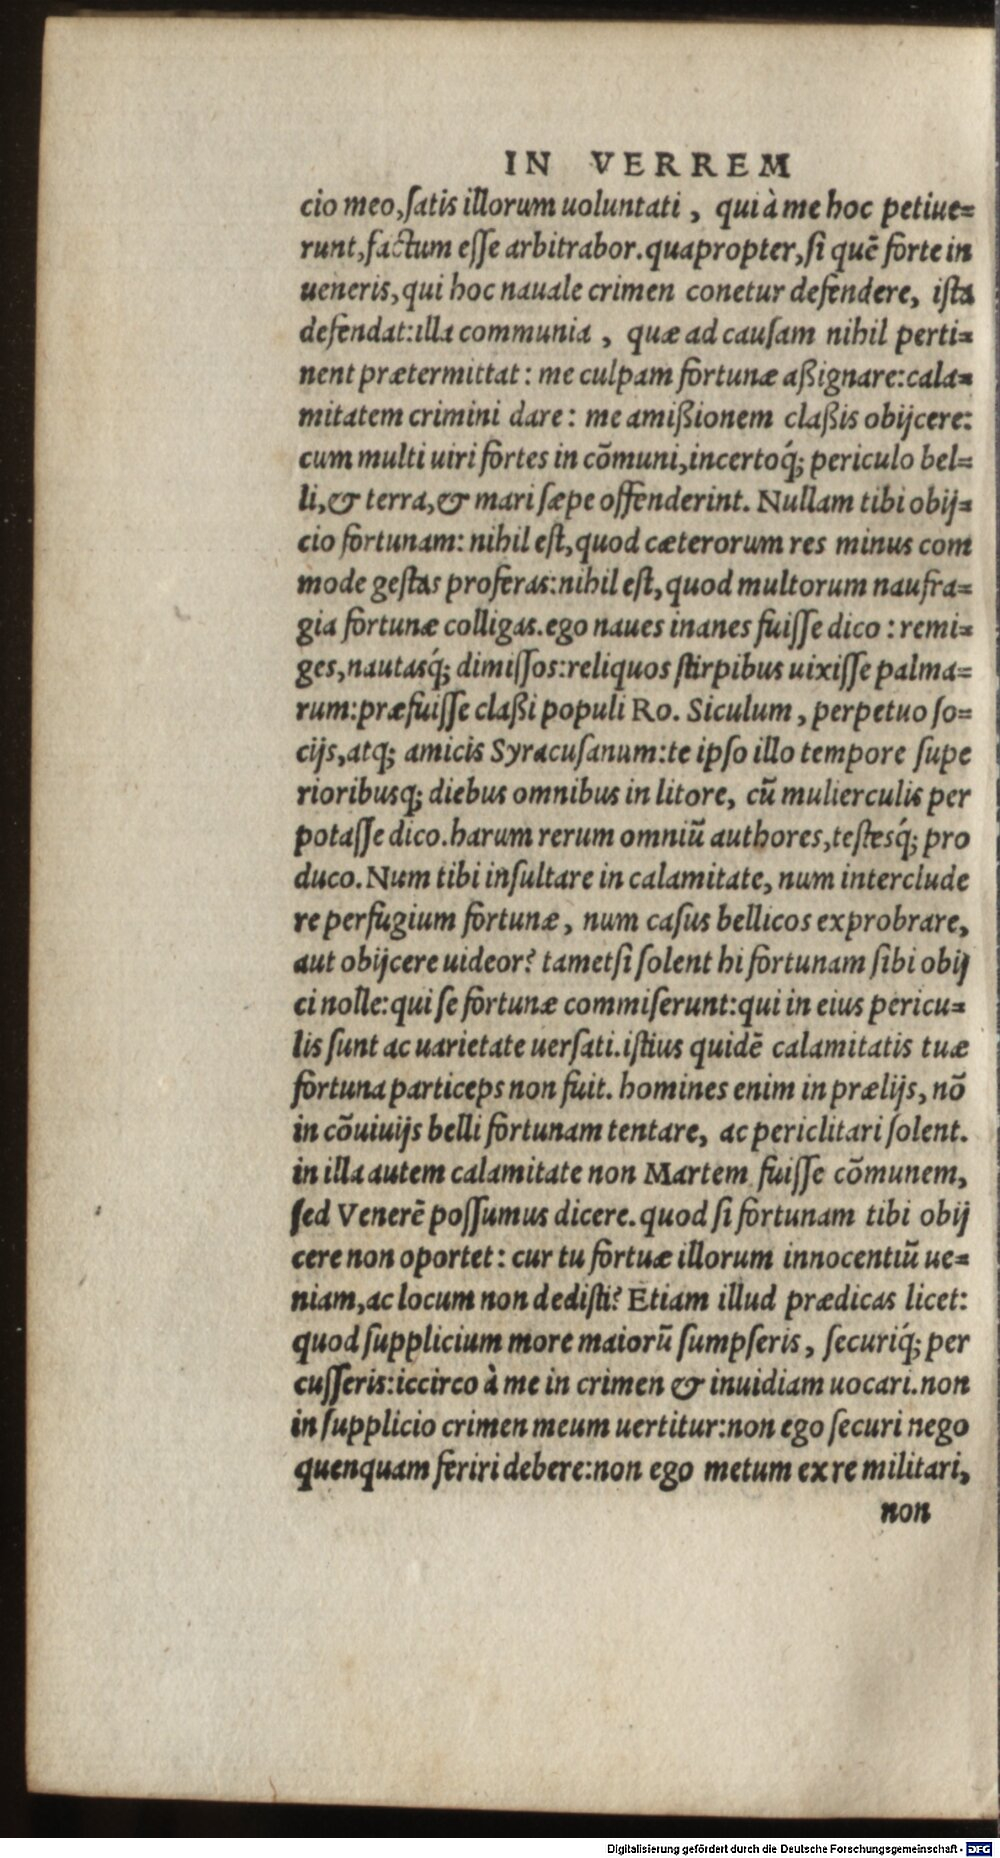 IN VERREM
cio meo, satis illorum uoluntati, qui à me hoc petiue=
runt, factum esse arbitrabor. quapropter, si quē forte in
ueneris, qui hoc nauale crimen conetur defendere, ista
defendat: illa communia, quæ ad causam nihil perti=
nent prætermittat: me culpam fortunæ aßignare: cala=
mitatem crimini dare: me amißionem claßis obijcere:
cum multi uiri fortes in cōmuni, incertoq́; periculo bel=
li, & terra, & mari sæpe offenderint. Nullam tibi obij=
cio fortunam: nihil est, quod cæterorum res minus com
mode gestas proferas: nihil est, quod multorum naufra=
gia fortunæ colligas. ego naues inanes fuisse dico: remi=
ges, nautasq́; dimissos: reliquos stirpibus uixisse palma=
rum: præfuisse claßi populi Ro. Siculum, perpetuo so=
cijs, atq; amicis Syracusanum: te ipso illo tempore supe
rioribusq; diebus omnibus in litore, cū mulierculis per
potasse dico. harum rerum omniū authores, testesq́; pro
duco. Num tibi insultare in calamitate, num interclude
re perfugium fortunæ, num casus bellicos exprobrare,
aut obijcere uideor? tametsi solent hi fortunam sibi obij
ci nolle: qui se fortunæ commiserunt: qui in eius pericu=
lis sunt ac uarietate uersati. istius quidē calamitatis tuæ
fortuna particeps non fuit. homines enim in prælijs, nō
in cōuiuijs belli fortunam tentare, ac periclitari solent.
in illa autem calamitate non Martem fuisse cōmunem,
sed Venerē possumus dicere. quod si fortunam tibi obij
cere non oportet: cur tu fortuæ illorum innocentiū ue=
niam, ac locum non dedisti? Etiam illud prædicas licet:
quod supplicium more maiorū sumpseris, securiq́; per
cusseris: iccirco à me in crimen & inuidiam uocari. non
in supplicio crimen meum uertitur: non ego securi nego
quenquam feriri debere: non ego metum ex re militari,
non
Digitalisierung gefördert durch die Deutsche Forschungsgemeinschaft - DFG